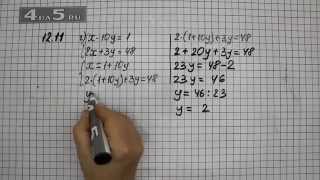 4da5.RU
12.11 г) x - 10y = 1
2x + 3y = 48
x = 1 + 10y
2·(1+10y)+3y=48
y
2·(1+10y)+3y=48
2 + 20y + 3y = 48
23y = 48 - 2
23y = 46
y = 46 : 23
y = 2